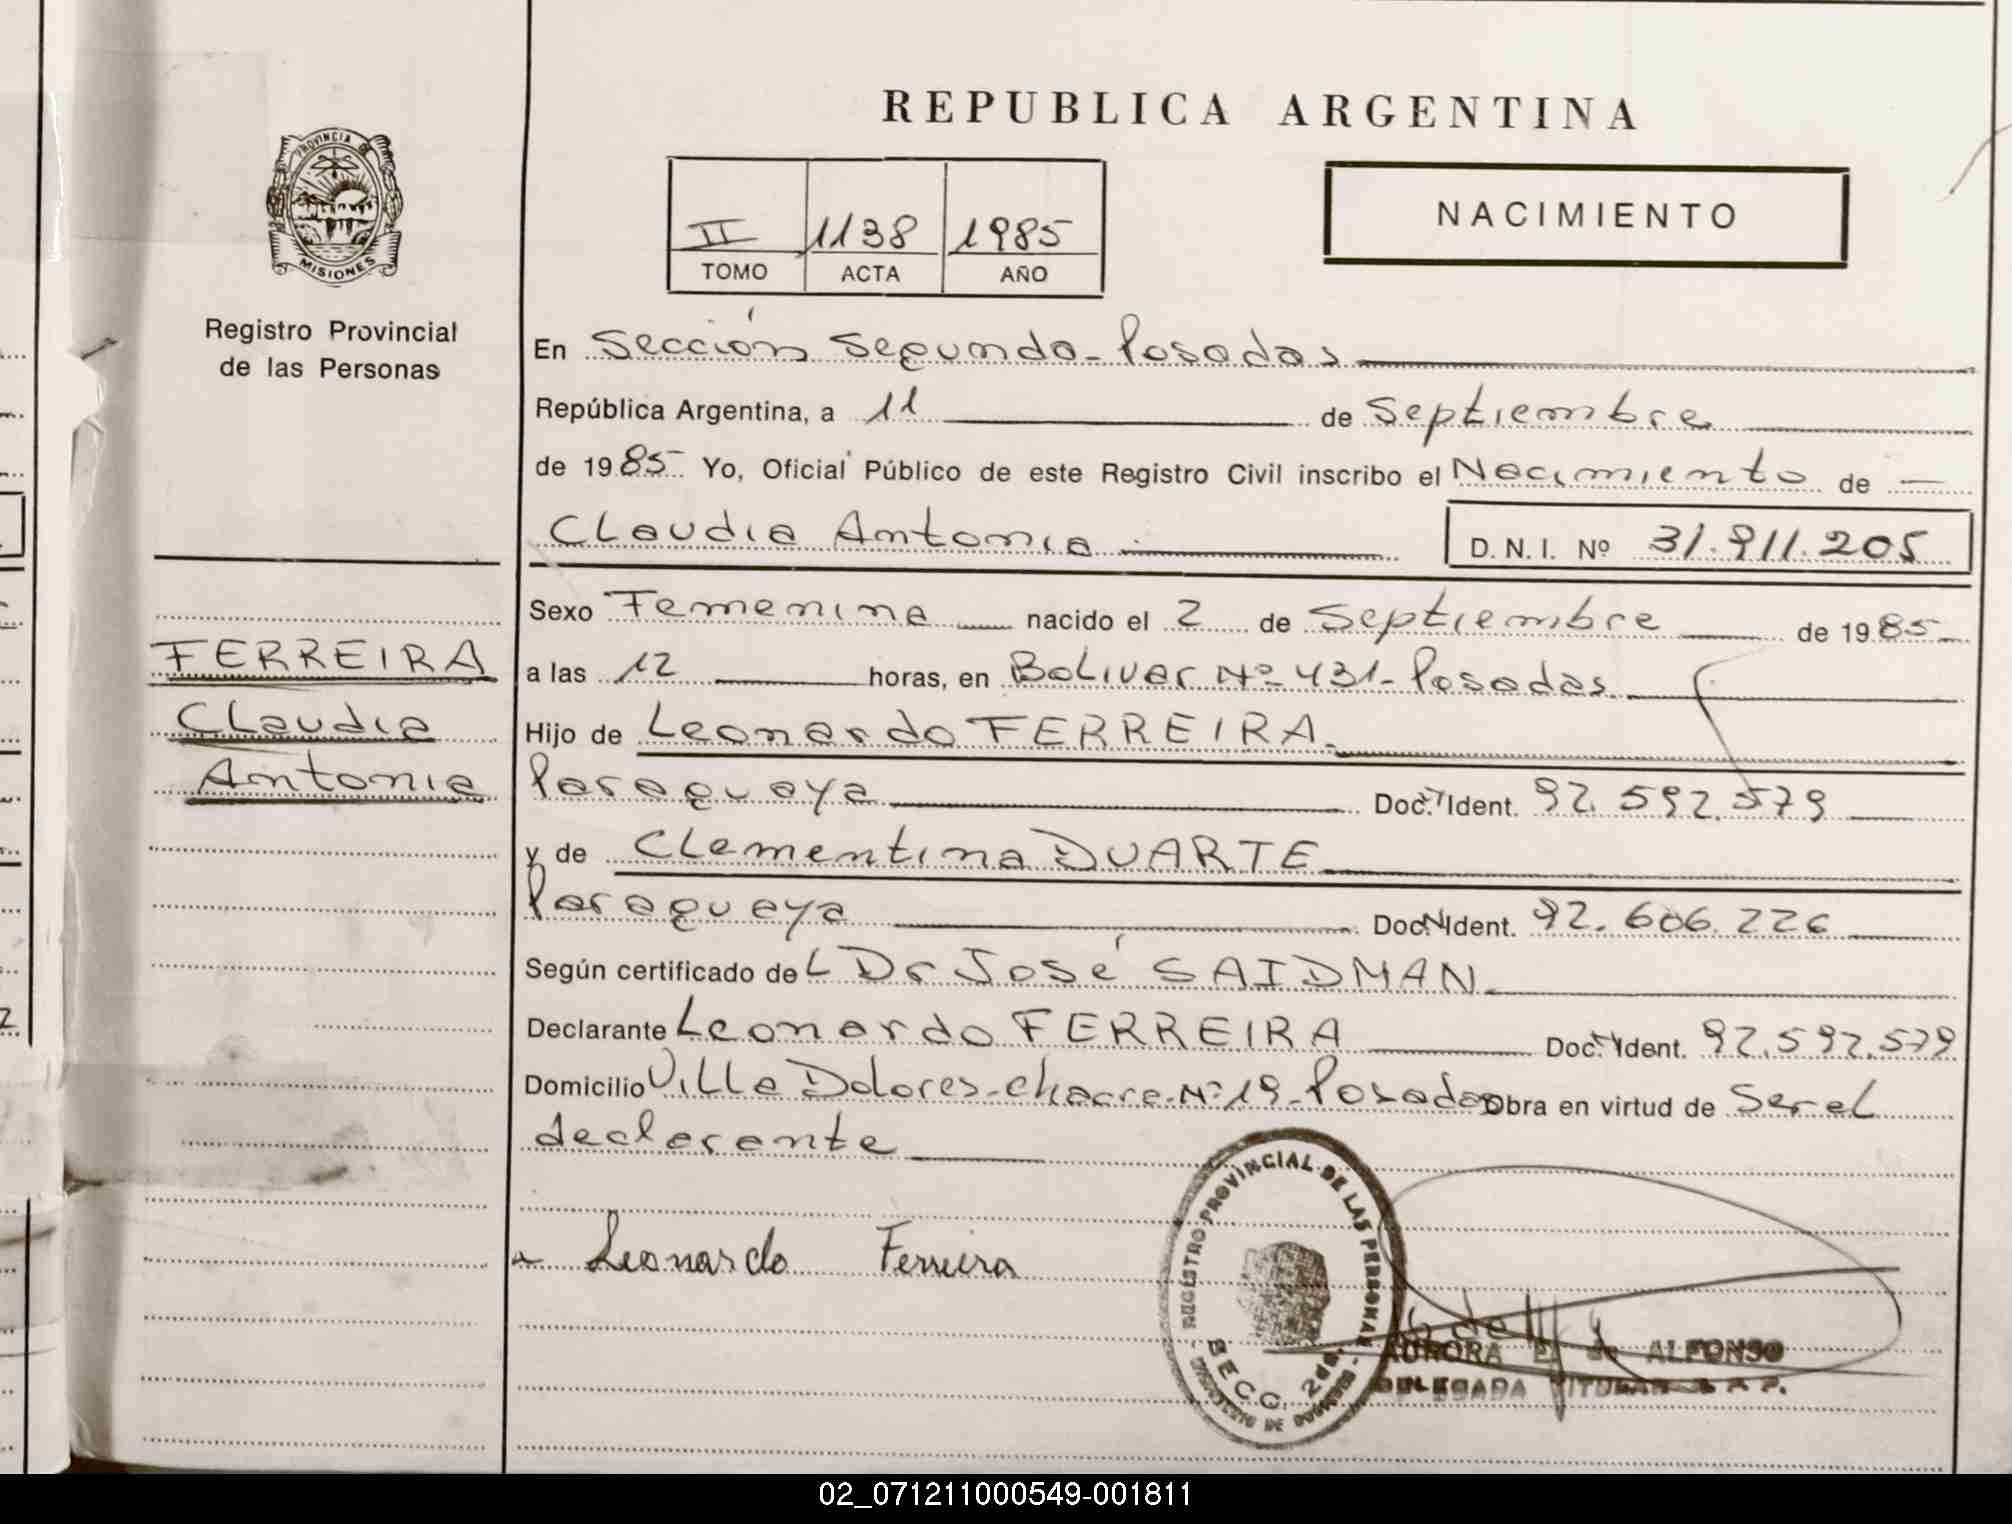 PROVINCIA DE
MISIONES
Registro Provincial
de las Personas
FERREIRA
Claudia
Antonia
REPUBLICA ARGENTINA
II 1138 1985
TOMO ACTA AÑO
NACIMIENTO
En Sección Segunda - Posadas
República Argentina, a 11 de Septiembre
de 1985 Yo, Oficial Público de este Registro Civil inscribo el Nacimiento de —
Claudia Antonia D. N. I. Nº 31.911.205
Sexo Femenina nacido el 2 de Septiembre de 1985
a las 12 horas, en Bolivar Nº 431 - Posadas
Hijo de Leonardo FERREIRA
Paraguaya Doc. Ident. 92.592.579
y de Clementina DUARTE
Paraguaya Doc. Ident. 92.606.226
Según certificado del Dr José SAIDMAN
Declarante Leonardo FERREIRA Doc. Ident. 92.592.579
Domicilio Villa Dolores - Chacra Nº 19 - Posadas Obra en virtud de Ser el
declarante
Leonardo Ferreira
REGISTRO PROVINCIAL DE LAS PERSONAS
SECC. 2da.
AURORA de ALFONSO
DELEGADA TITULAR R. P. P.
02_071211000549-001811